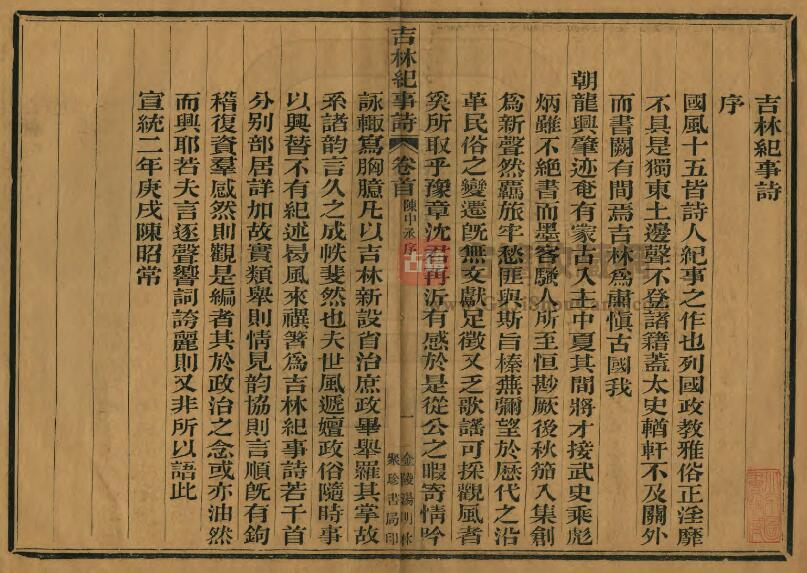 吉林紀事詩
序
國風十五皆詩人紀事之作也列國政教雅俗正淫靡
不具是獨東土邊聲不登諸籍蓋太史輶軒不及關外
而書闕有間焉吉林為肅愼古國我
朝龍興肇迹奄有蒙古入主中夏其間將才接武史乘彪
炳雖不絶書而墨客騷人所至恒尠厥後秋笳入集創
為新聲然羈旅牢愁匪與斯旨榛蕪彌望於歷代之沿
革民俗之變遷旣無文獻足徵又乏歌謠可採觀風者
奚所取乎豫章沈君再沂有感於是從公之暇寄情吟
吉林紀事詩 卷首 陳中丞序 一 金陵湯明林聚珍書局印
詠輙寫胸臆凡以吉林新設首治庶政畢舉羅其掌故
系諸韵言久之成帙斐然也夫世風遞嬗政俗隨時事
以興替不有紀述曷風來禩箸為吉林紀事詩若干首
分别部居詳加故實類舉則情見韵協則言順旣有鉤
稽復資羣感然則觀是編者其於政治之念或亦油然
而興耶若夫言逐聲響詞誇麗則又非所以語此
宣統二年庚戌陳昭常